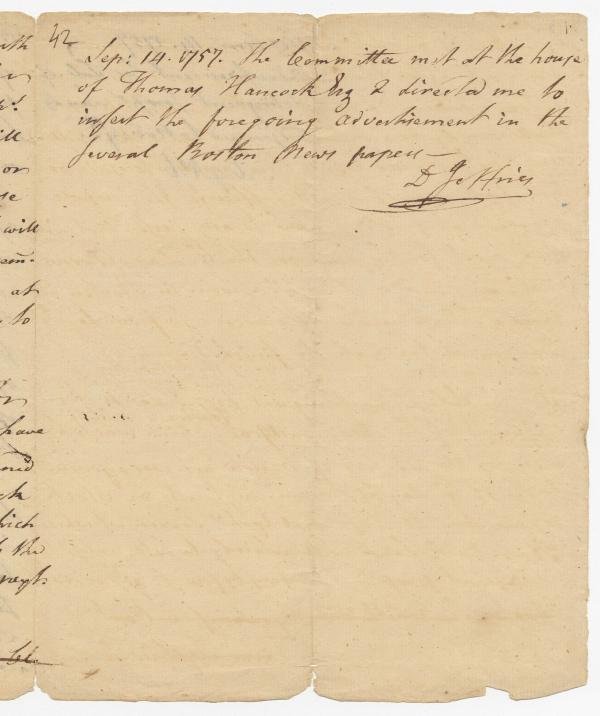 42
Sep: 14. 1757. The Committee met at the house
of Thomas Hancock Esq & directed me to
insert the foregoing advertisement in the
several Boston News papers—
D Jeffries
will
or
will
at
to
have
ck
hich
the